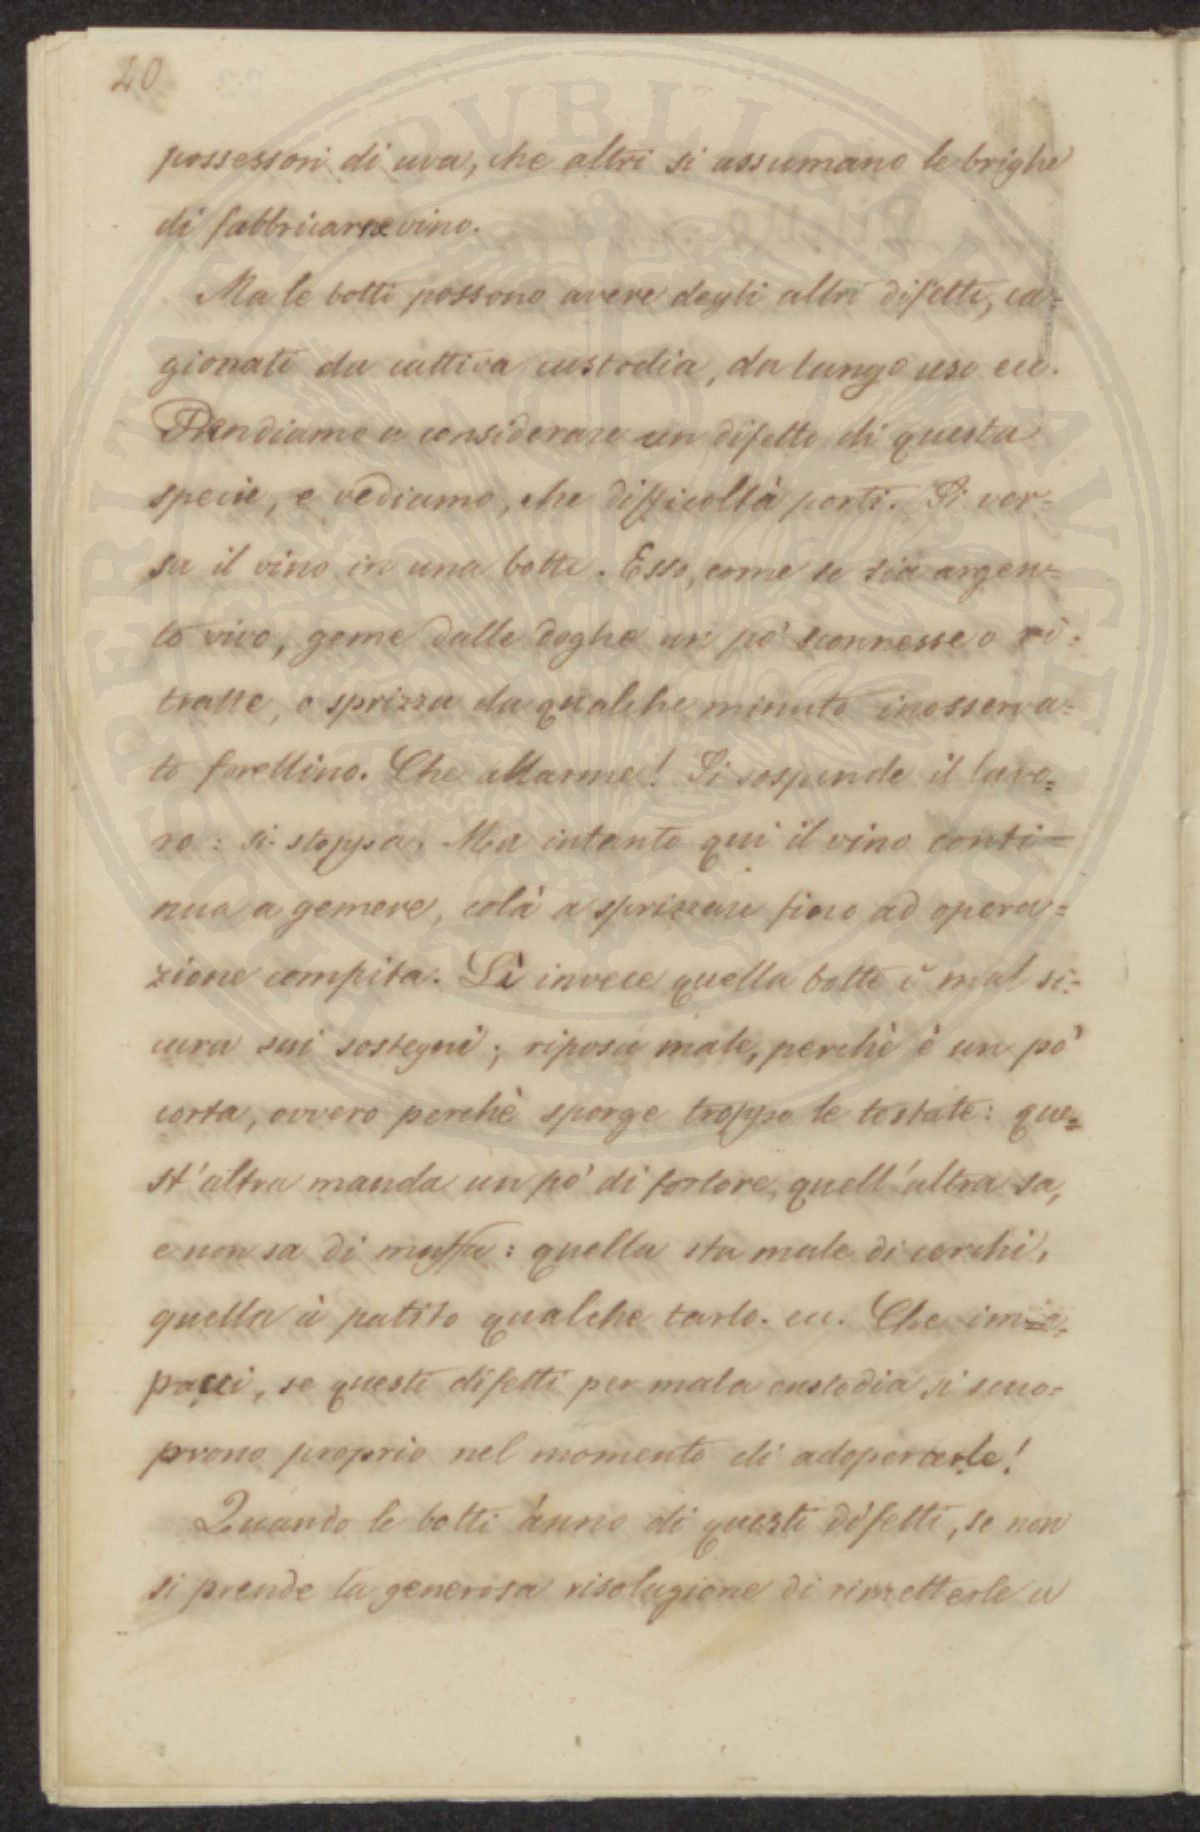 20
possessori di uva, che altri si assumano le brighe
di fabbricarne vino.
Ma le botti possono avere degli altri difetti, ca=
gionati da cattiva custodia, da lungo uso ecc.
Prendiamo a considerare un difetto di questa
specie, e vediamo, che difficoltà porti. Si ver=
sa il vino in una botte. Esso, come se sia argen=
to vivo, geme dalle doghe un po' sconnesse o ri=
tratte, o sprizza da qualche minuto inosserva=
to forellino. Che allarme! Si sospende il lavo=
ro: si stoppa. Ma intanto qui il vino conti=
nua a gemere, colà a sprizzare fino ad opera=
zione compita. Lì invece quella botte è mal si=
cura sui sostegni; riposa male, perchè è un po'
corta, ovvero perchè sporge troppo le testate: que=
st'altra manda un po' di fortore, quell'altra sa,
e non sa di muffa: quella sta male di cerchi,
quella à patito qualche tarlo. ecc. Che im=
pacci, se questi difetti per mala custodia si scuo=
prono proprio nel momento di adoperarle!
Quando le botti ànno di questi difetti, se non
si prende la generosa risoluzione di rimetterle a
PROSPERITATI PVBLICAE AVGENDAE